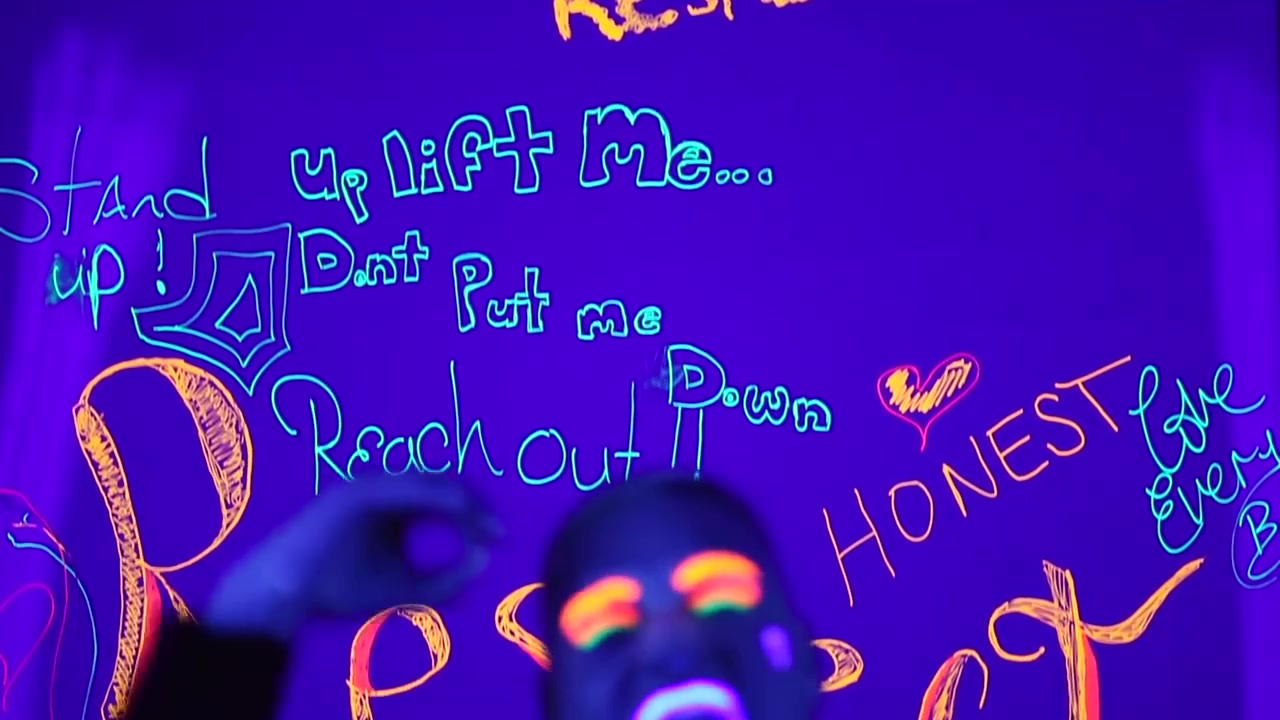 Stand
up!
uplift Me...
Dont Put me
Down
Reach out
HONEST
Love
Every